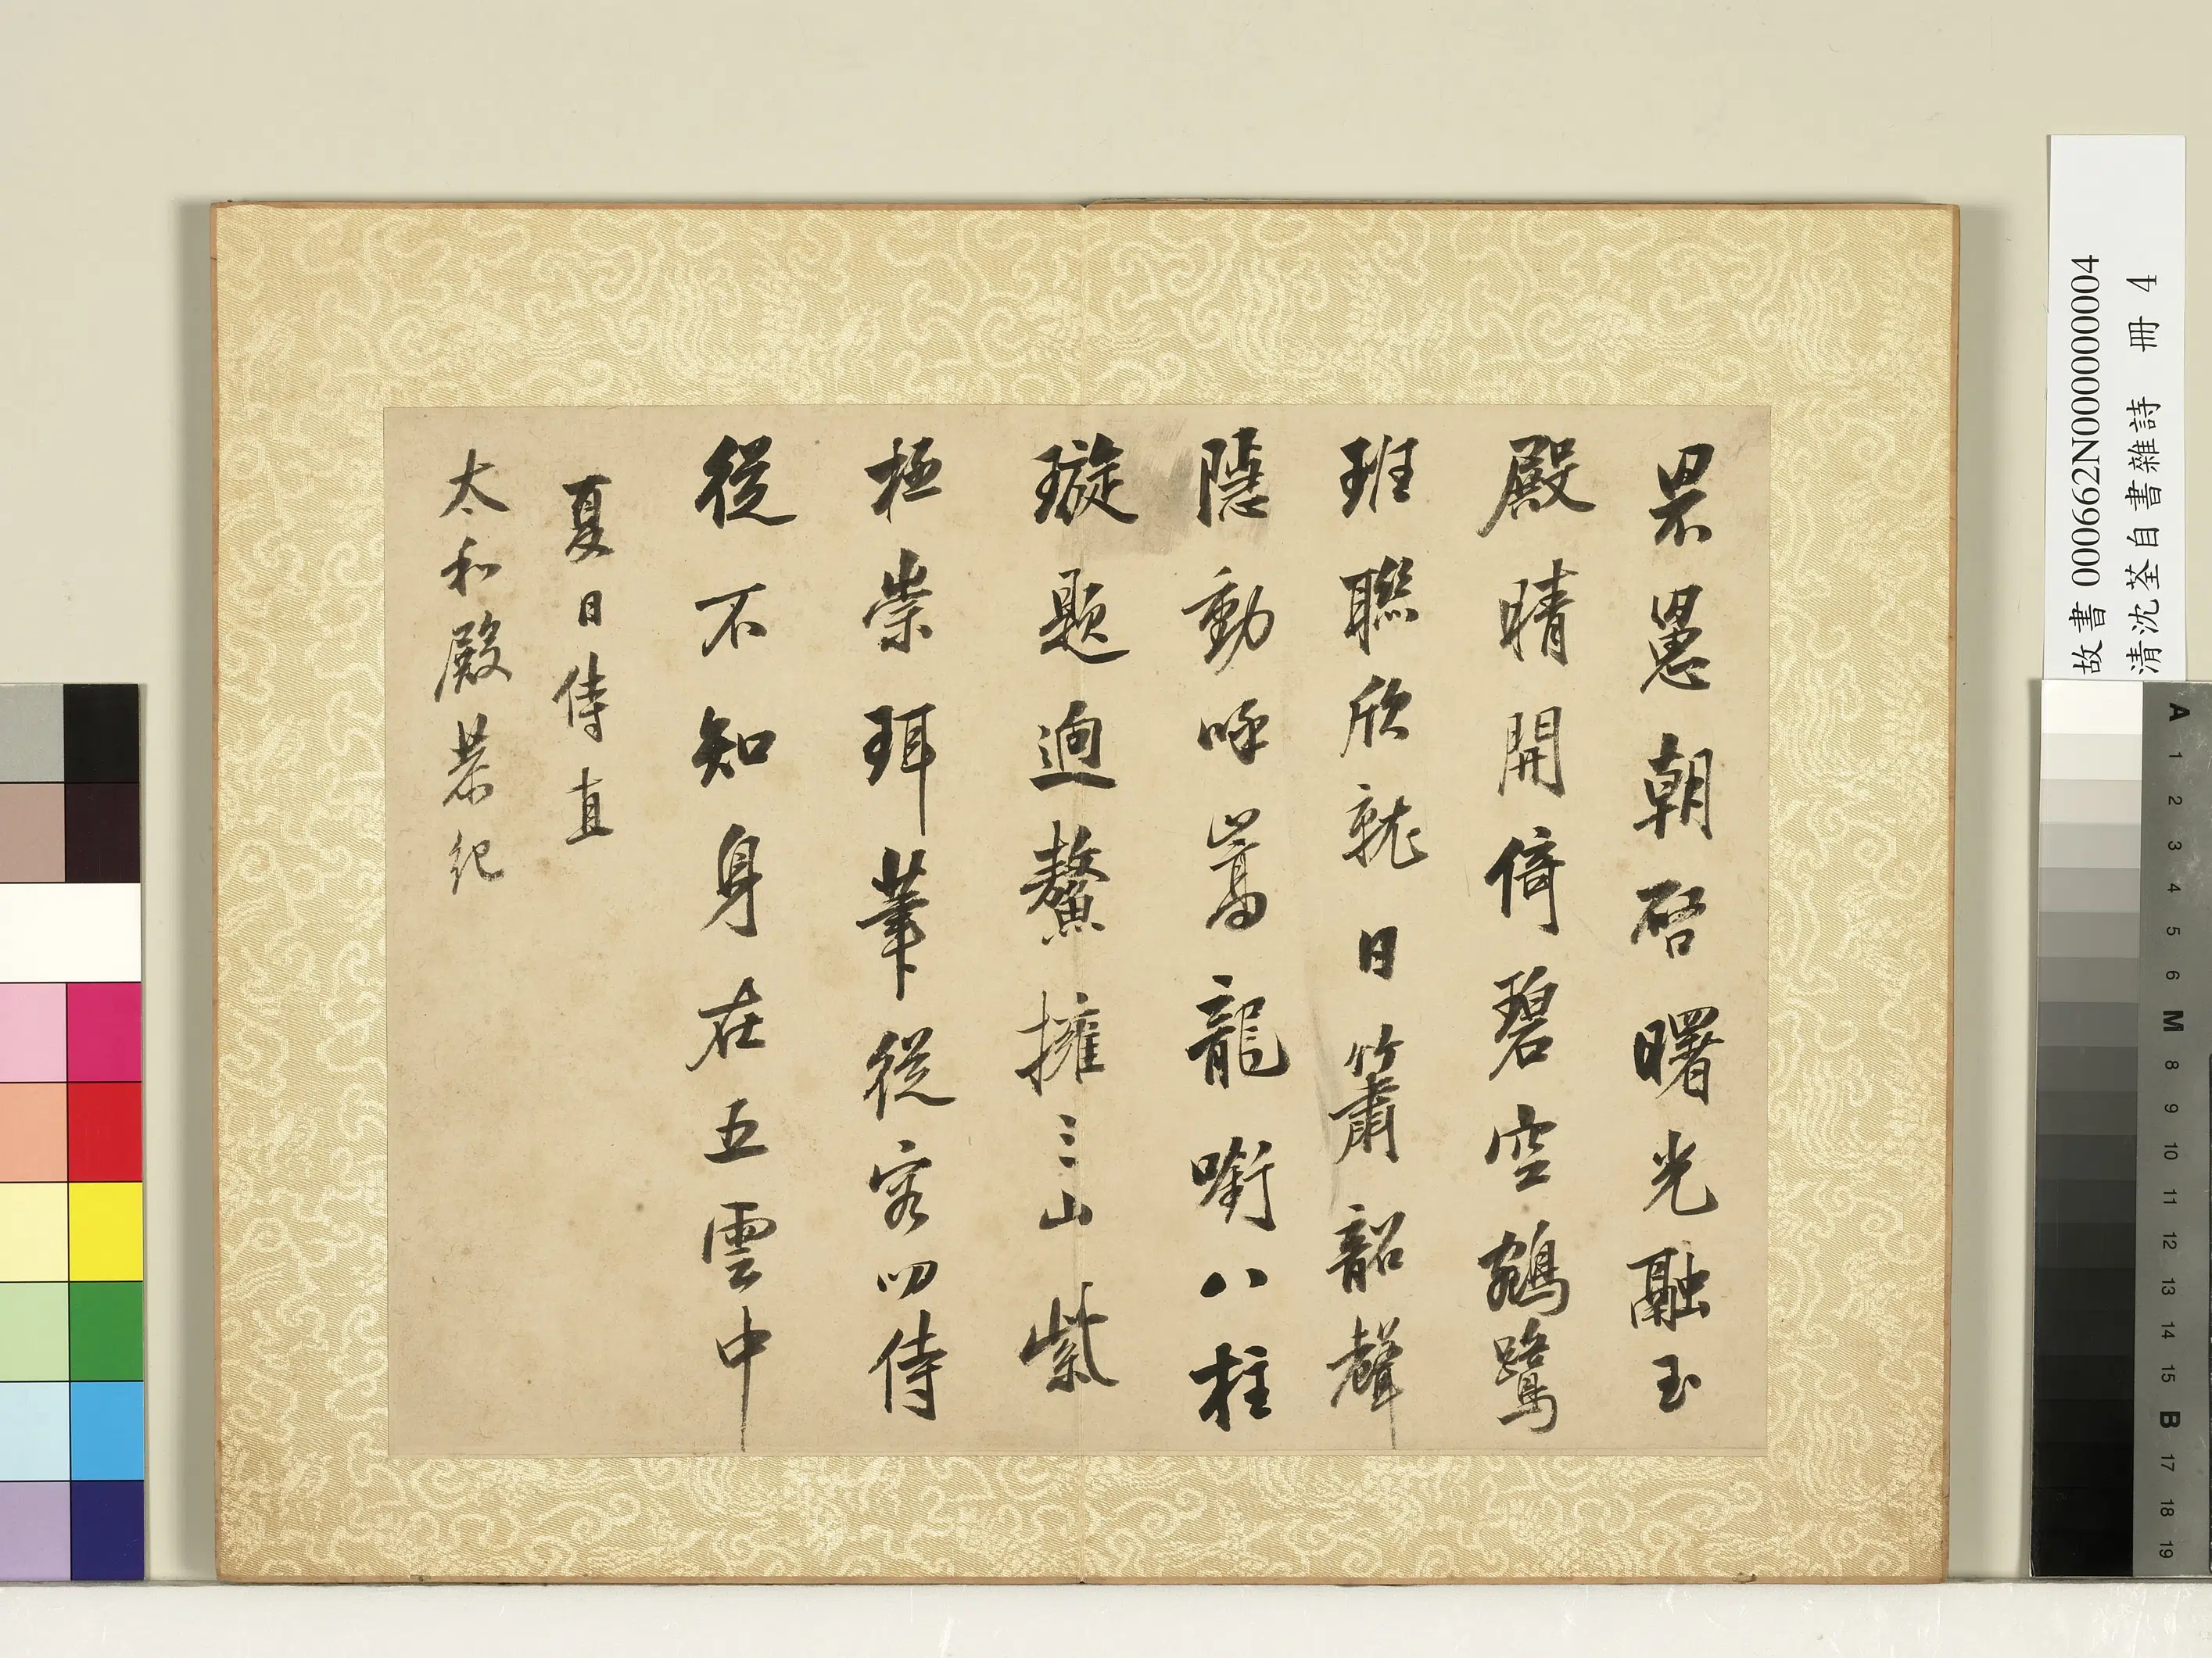 罘罳朝啓曙光融玉
殿晴開倚碧空鵷鷺
班聯欣就日簫韶聲
隱動呼嵩龍銜八柱
璇題迥鰲擁三山紫
極崇珥筆從容叨侍
從不知身在五雲中
夏日侍直
太和殿恭紀
故書 000662N000000004
清沈荃自書雜詩 冊 4
A 1 2 3 4 5 6 M 8 9 10 11 12 13 14 15 B 17 18 19